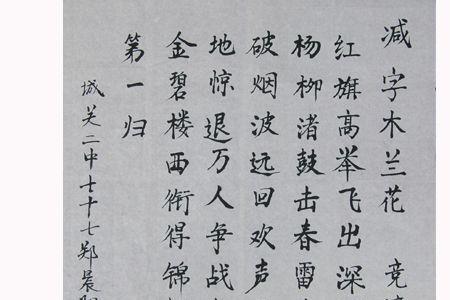 减字木兰花 竞
红旗高举飞出深
杨柳渚鼓击春雷
破烟波远回欢声
地惊退万人争战
金碧楼西衔得锦
第一归
城关二中七十七郑晨